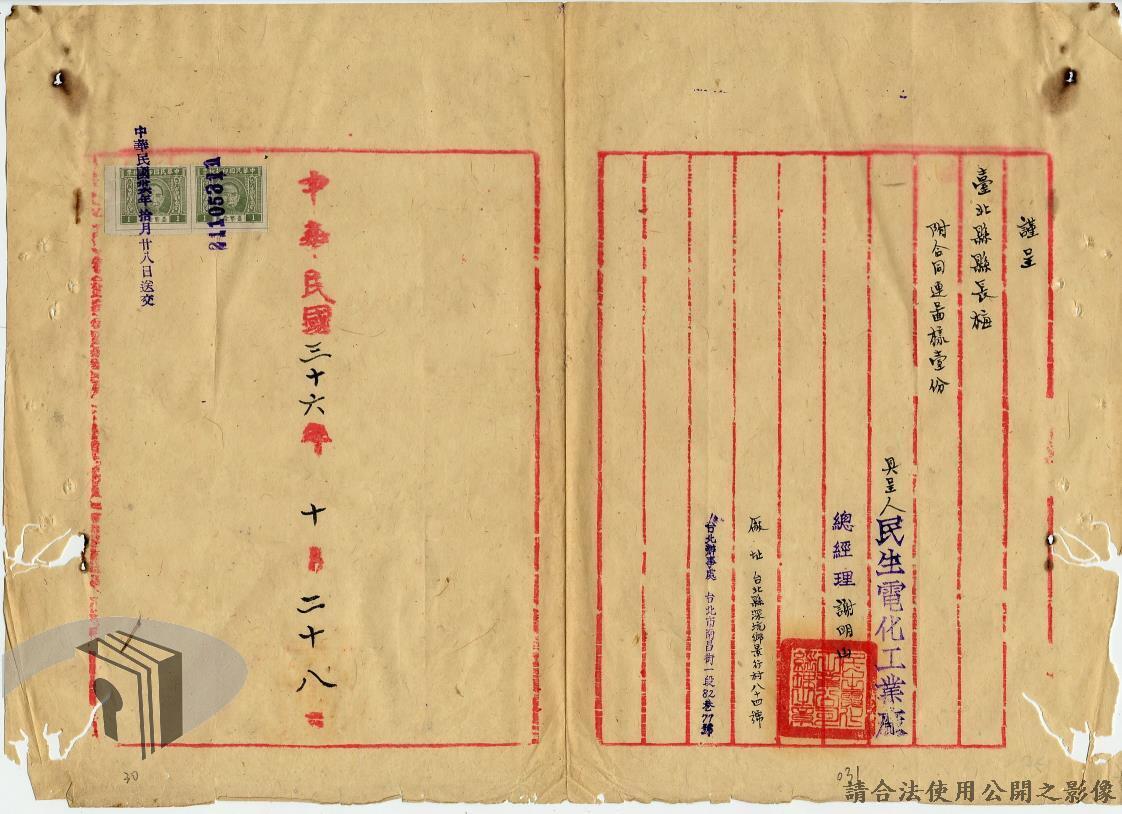 謹呈
臺北縣縣長梅
附合同連圖樣壹份
具呈人民生電化工業廠
總經理謝明山
廠址 台北縣深坑鄉景行村八十四號
台北辦事處 台北市南昌街一段82巷77號
中華民國三十六年十月二十八日
21105311
中華民國卅六年拾月廿八日送交
30
031
請合法使用公開之影像